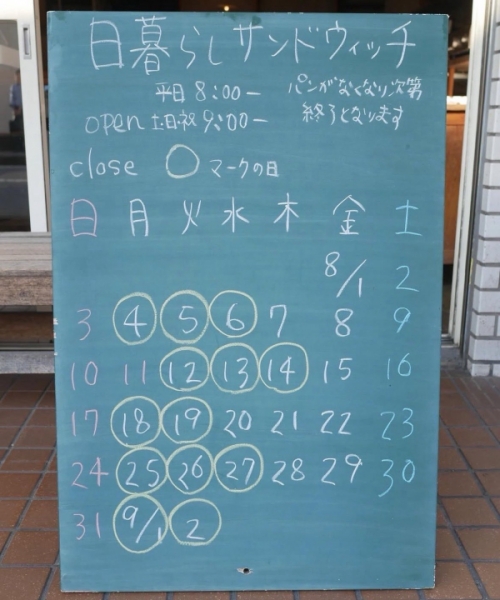 日暮らしサンドウィッチ
平日 8:00ー
open 土・日・祝 9:00ー
パンがなくなり次第
終了となります
close ○マークの日
日 月 火 水 木 金 土
8/1 2
3 4 5 6 7 8 9
10 11 12 13 14 15 16
17 18 19 20 21 22 23
24 25 26 27 28 29 30
31 9/1 2